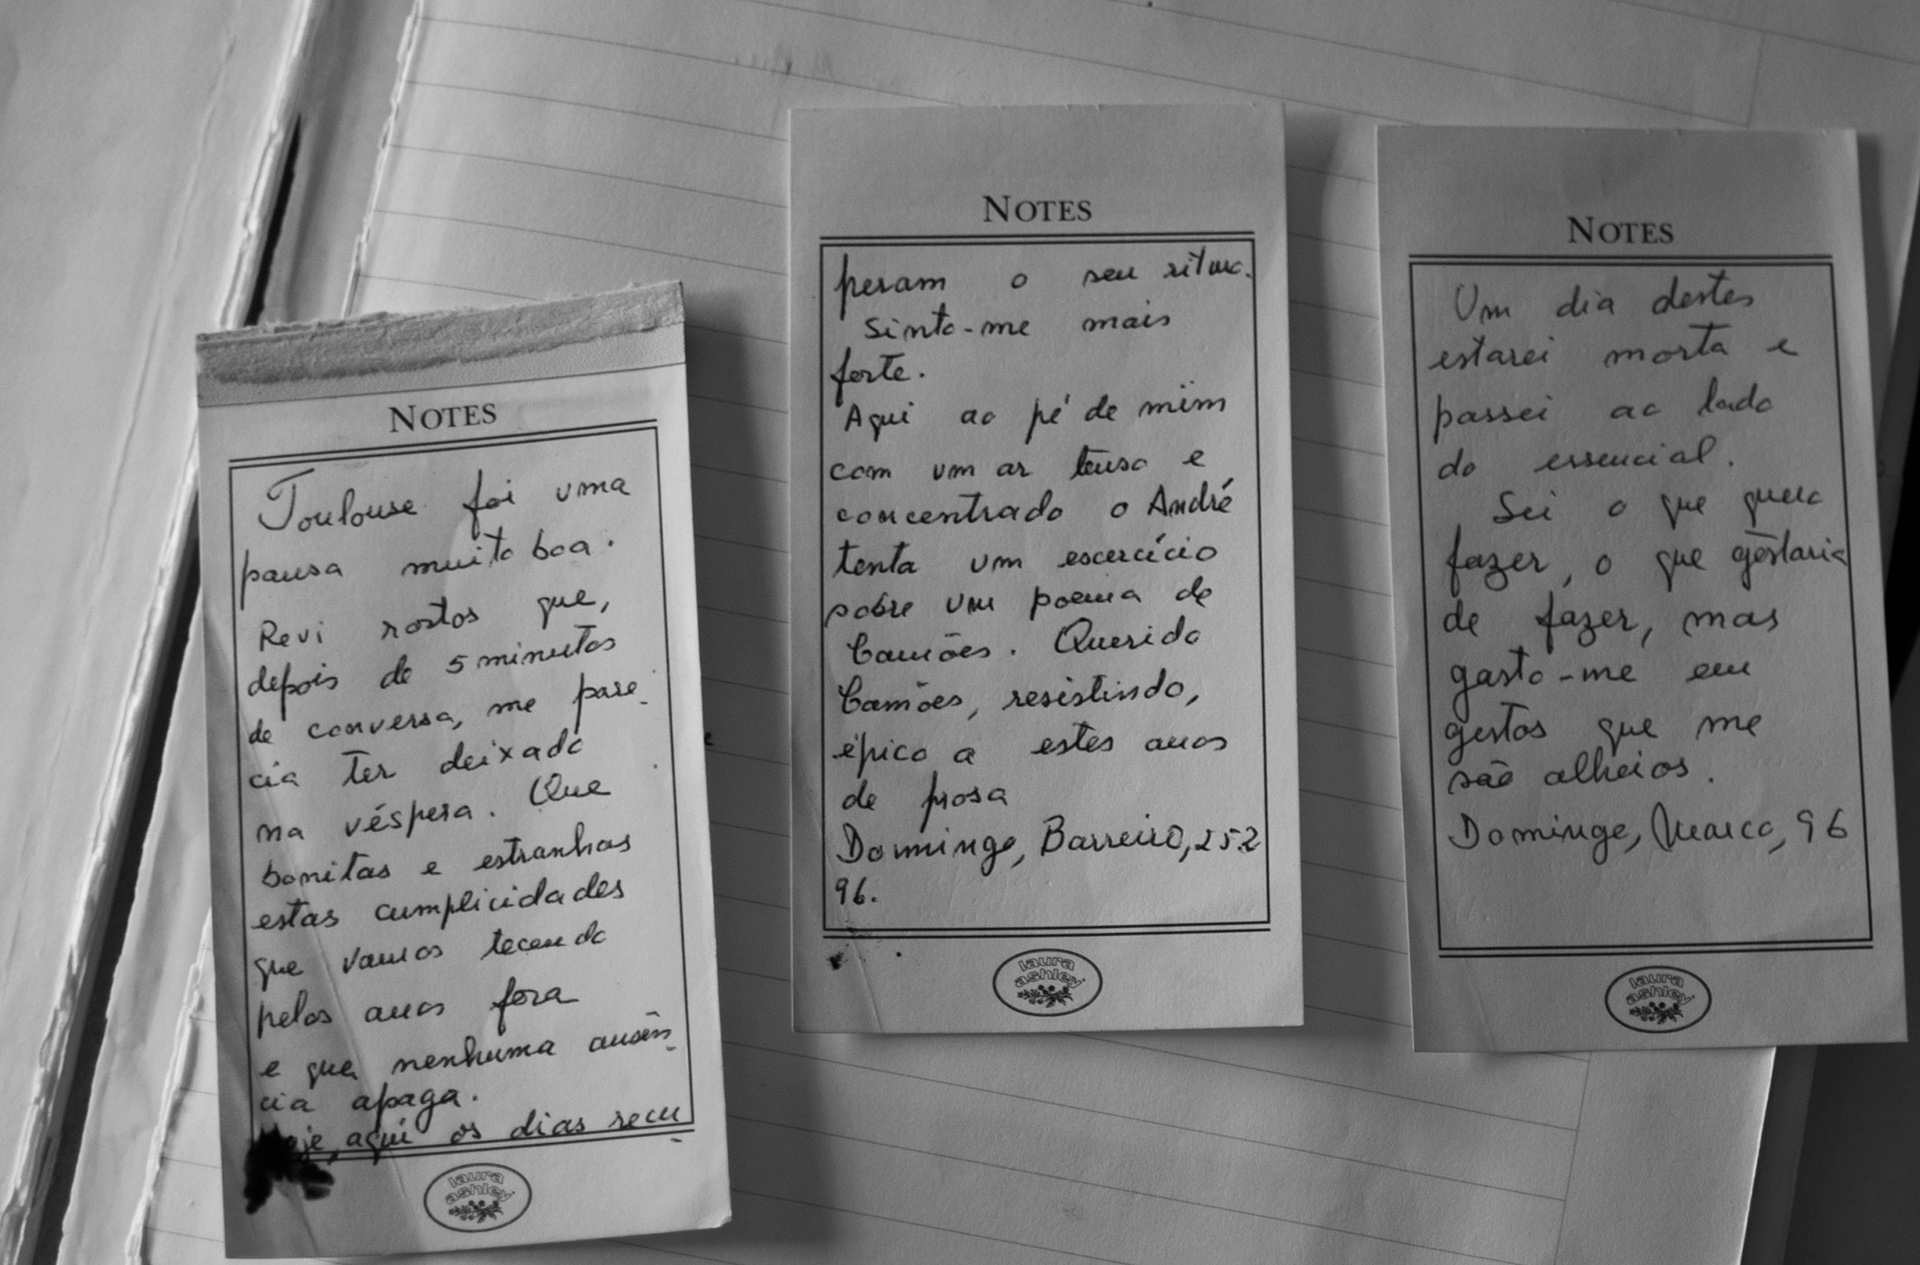 NOTES
Toulouse foi uma
pausa muito boa.
Revi rostos que,
depois de 5 minutos
de conversa, me pare-
cia ter deixado
na véspera. Que
bonitas e estranhas
estas cumplicidades
que vamos tecendo
pelos anos fora
e que nenhuma ausên-
cia apaga.
Hoje, aqui os dias recu-
laura
ashley
NOTES
peram o seu ritmo.
Sinto-me mais
forte.
Aqui ao pé de mim
com um ar tenso e
concentrado o André
tenta um escercício
sobre um poema de
Camões. Querido
Camões, resistindo,
épico a estes anos
de prosa
Domingo, Barreiro, 25.2
96.
laura
ashley
NOTES
Um dia destes
estarei morta e
passei ao lado
do essencial.
Sei o que quero
fazer, o que gostaria
de fazer, mas
gasto-me em
gestos que me
são alheios.
Domingo, Março, 96
laura
ashley